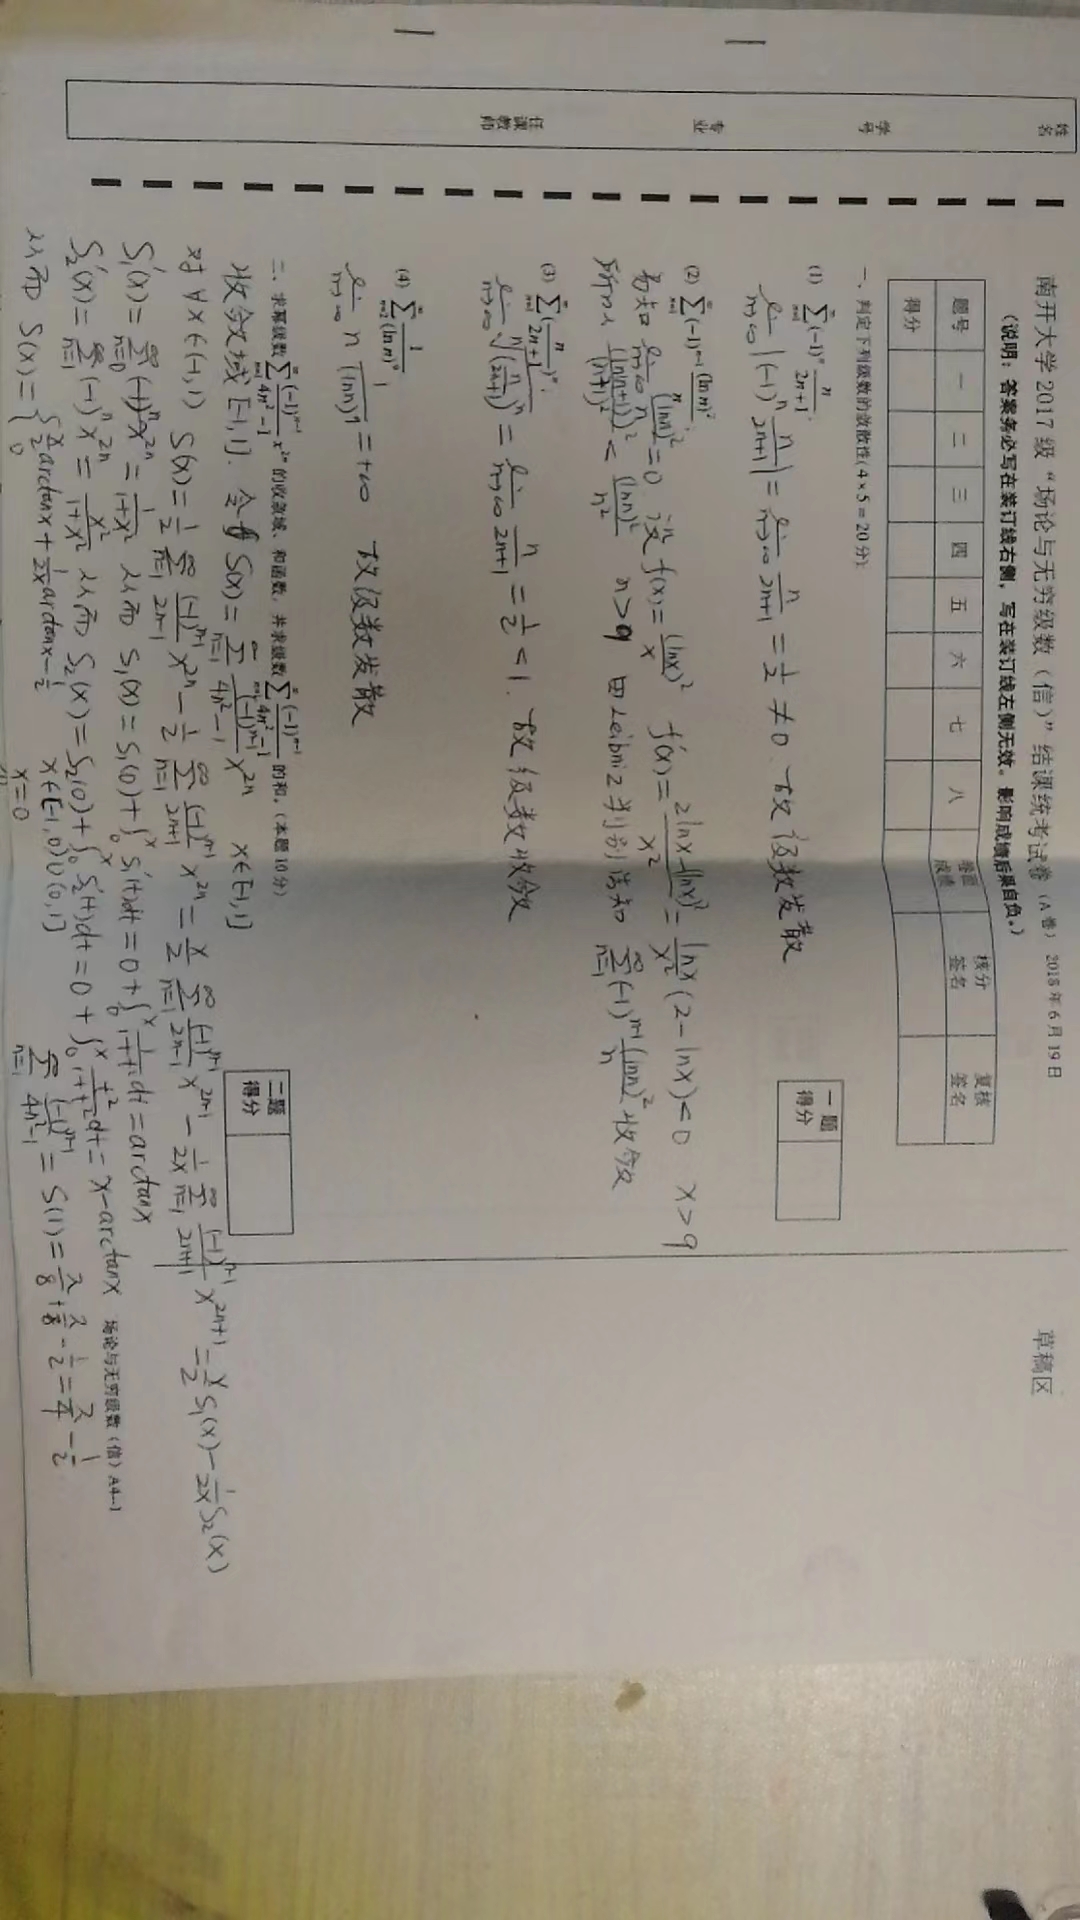 南开大学2017级“场论与无穷级数(信)”结课统考试卷(A卷) 2018年6月19日
草稿区
(说明:答案务必写在装订线右侧,写在装订线左侧无效。影响成绩后果自负。)
姓名
学号
专业
任课教师
题号 一 二 三 四 五 六 七 八 卷面成绩 核分签名 复核签名
得分
一、判定下列级数的敛散性(4×5=20分):
一题得分
(1) ∑_{n=1}^{∞}(-1)^n n/(2n+1);
lim_{n→∞}|(-1)^n n/(2n+1)| = lim_{n→∞} n/(2n+1) = 1/2 ≠ 0. 故级数发散
(2) ∑_{n=1}^{∞}(-1)^{n-1} (ln n)^2/n;
易知 lim_{n→∞} (ln n)^2/n = 0 设 f(x) = (lnx)^2/x f'(x) = (2lnx-(lnx)^2)/x^2 = lnx/x^2 (2-lnx) < 0 x>9
所以 (ln(n+1))^2/(n+1)^2 < (ln n)^2/n^2 n>9 由Leibniz判别法知 ∑_{n=1}^{∞}(-1)^{n-1} (ln n)^2/n 收敛
(3) ∑_{n=1}^{∞}(n/(2n+1))^n;
lim_{n→∞} ⁿ√(n/(2n+1))^n = lim_{n→∞} n/(2n+1) = 1/2 < 1. 故级数收敛
(4) ∑_{n=2}^{∞} 1/(ln n)^9
lim_{n→∞} n 1/(ln n)^9 = +∞ 故级数发散
二、求幂级数∑_{n=1}^{∞} (-1)^{n-1}/(4n^2-1) x^{2n}的收敛域、和函数,并求级数∑_{n=1}^{∞} (-1)^{n-1}/(4n^2-1)的和。(本题10分)
二题得分
收敛域[-1,1]. 令 S(x) = ∑_{n=1}^{∞} (-1)^{n-1}/(4n^2-1) x^{2n} x∈[-1,1]
对∀x∈(-1,1) S(x) = 1/2 ∑_{n=1}^{∞} (-1)^{n-1}/(2n-1) x^{2n} - 1/2 ∑_{n=1}^{∞} (-1)^{n-1}/(2n+1) x^{2n} = x/2 ∑_{n=1}^{∞} (-1)^{n-1}/(2n-1) x^{2n-1} - 1/2x ∑_{n=1}^{∞} (-1)^{n-1}/(2n+1) x^{2n+1} = x/2 S₁(x) - 1/2x S₂(x)
S₁'(x) = ∑_{n=0}^{∞}(-1)^n x^{2n} = 1/(1+x^2) 从而 S₁(x) = S₁(0)+∫_0^x S₁'(t)dt = 0+∫_0^x 1/(1+t^2)dt = arctanx
S₂'(x) = ∑_{n=1}^{∞}(-1)^n x^{2n} = x^2/(1+x^2) 从而 S₂(x) = S₂(0)+∫_0^x S₂'(t)dt = 0+∫_0^x t^2/(1+t^2)dt = x-arctanx
场论与无穷级数(信)A4-1
从而 S(x) = { x/2 arctanx + 1/2x arctanx - 1/2 x∈[-1,0)∪(0,1]
0 x=0
∑_{n=1}^{∞} (-1)^{n-1}/(4n^2-1) = S(1) = π/8+π/8-1/2 = π/4-1/2